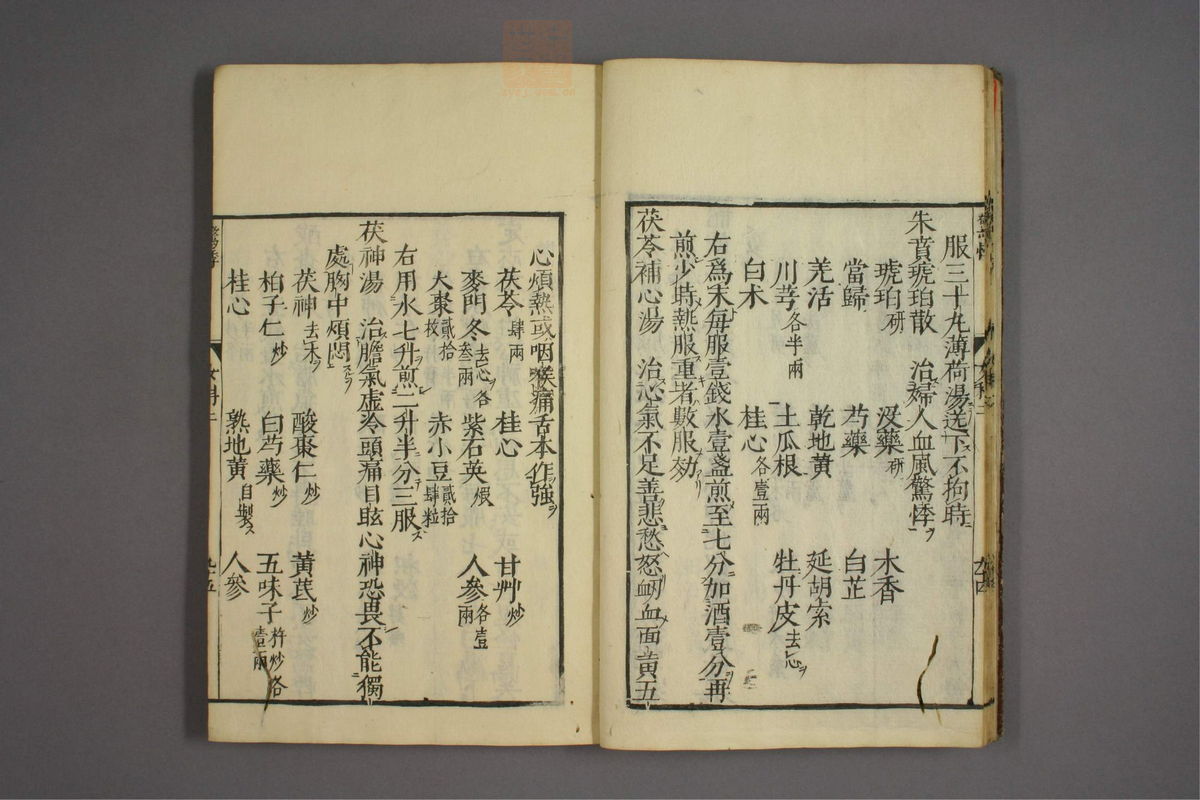 服三十丸薄荷湯送下不拘時
朱賁琥珀散　治婦人血風驚悸ヲ
琥珀研　沒藥研　木香
當歸　芍藥　白芷
羗活　乾地黃　延胡索
川芎各半兩　土瓜根　牡丹皮去心ヲ
白术　桂心各壹兩
右爲末毎服壹錢水壹盞煎至七分加酒壹分再
煎少時熱服重者數服効
茯苓補心湯　治心氣不足善悲愁怒衂血面黄五
心煩熱或咽喉痛舌本作強ヲ
茯苓肆兩　桂心　甘艸炒
麥門冬去心ヲ各叁兩　紫石英煆　人參各壹兩
大棗貳拾枚　赤小豆貳拾肆粒
右用水七升煎二升半分三服ス
茯神湯　治膽氣虛冷頭痛目眩心神恐畏不能獨
處胸中煩悶
茯神去木ヲ　酸棗仁炒　黃芪炒
柏子仁炒　白芍藥炒　五味子杵炒各壹兩
桂心　熟地黃自製ス　人參